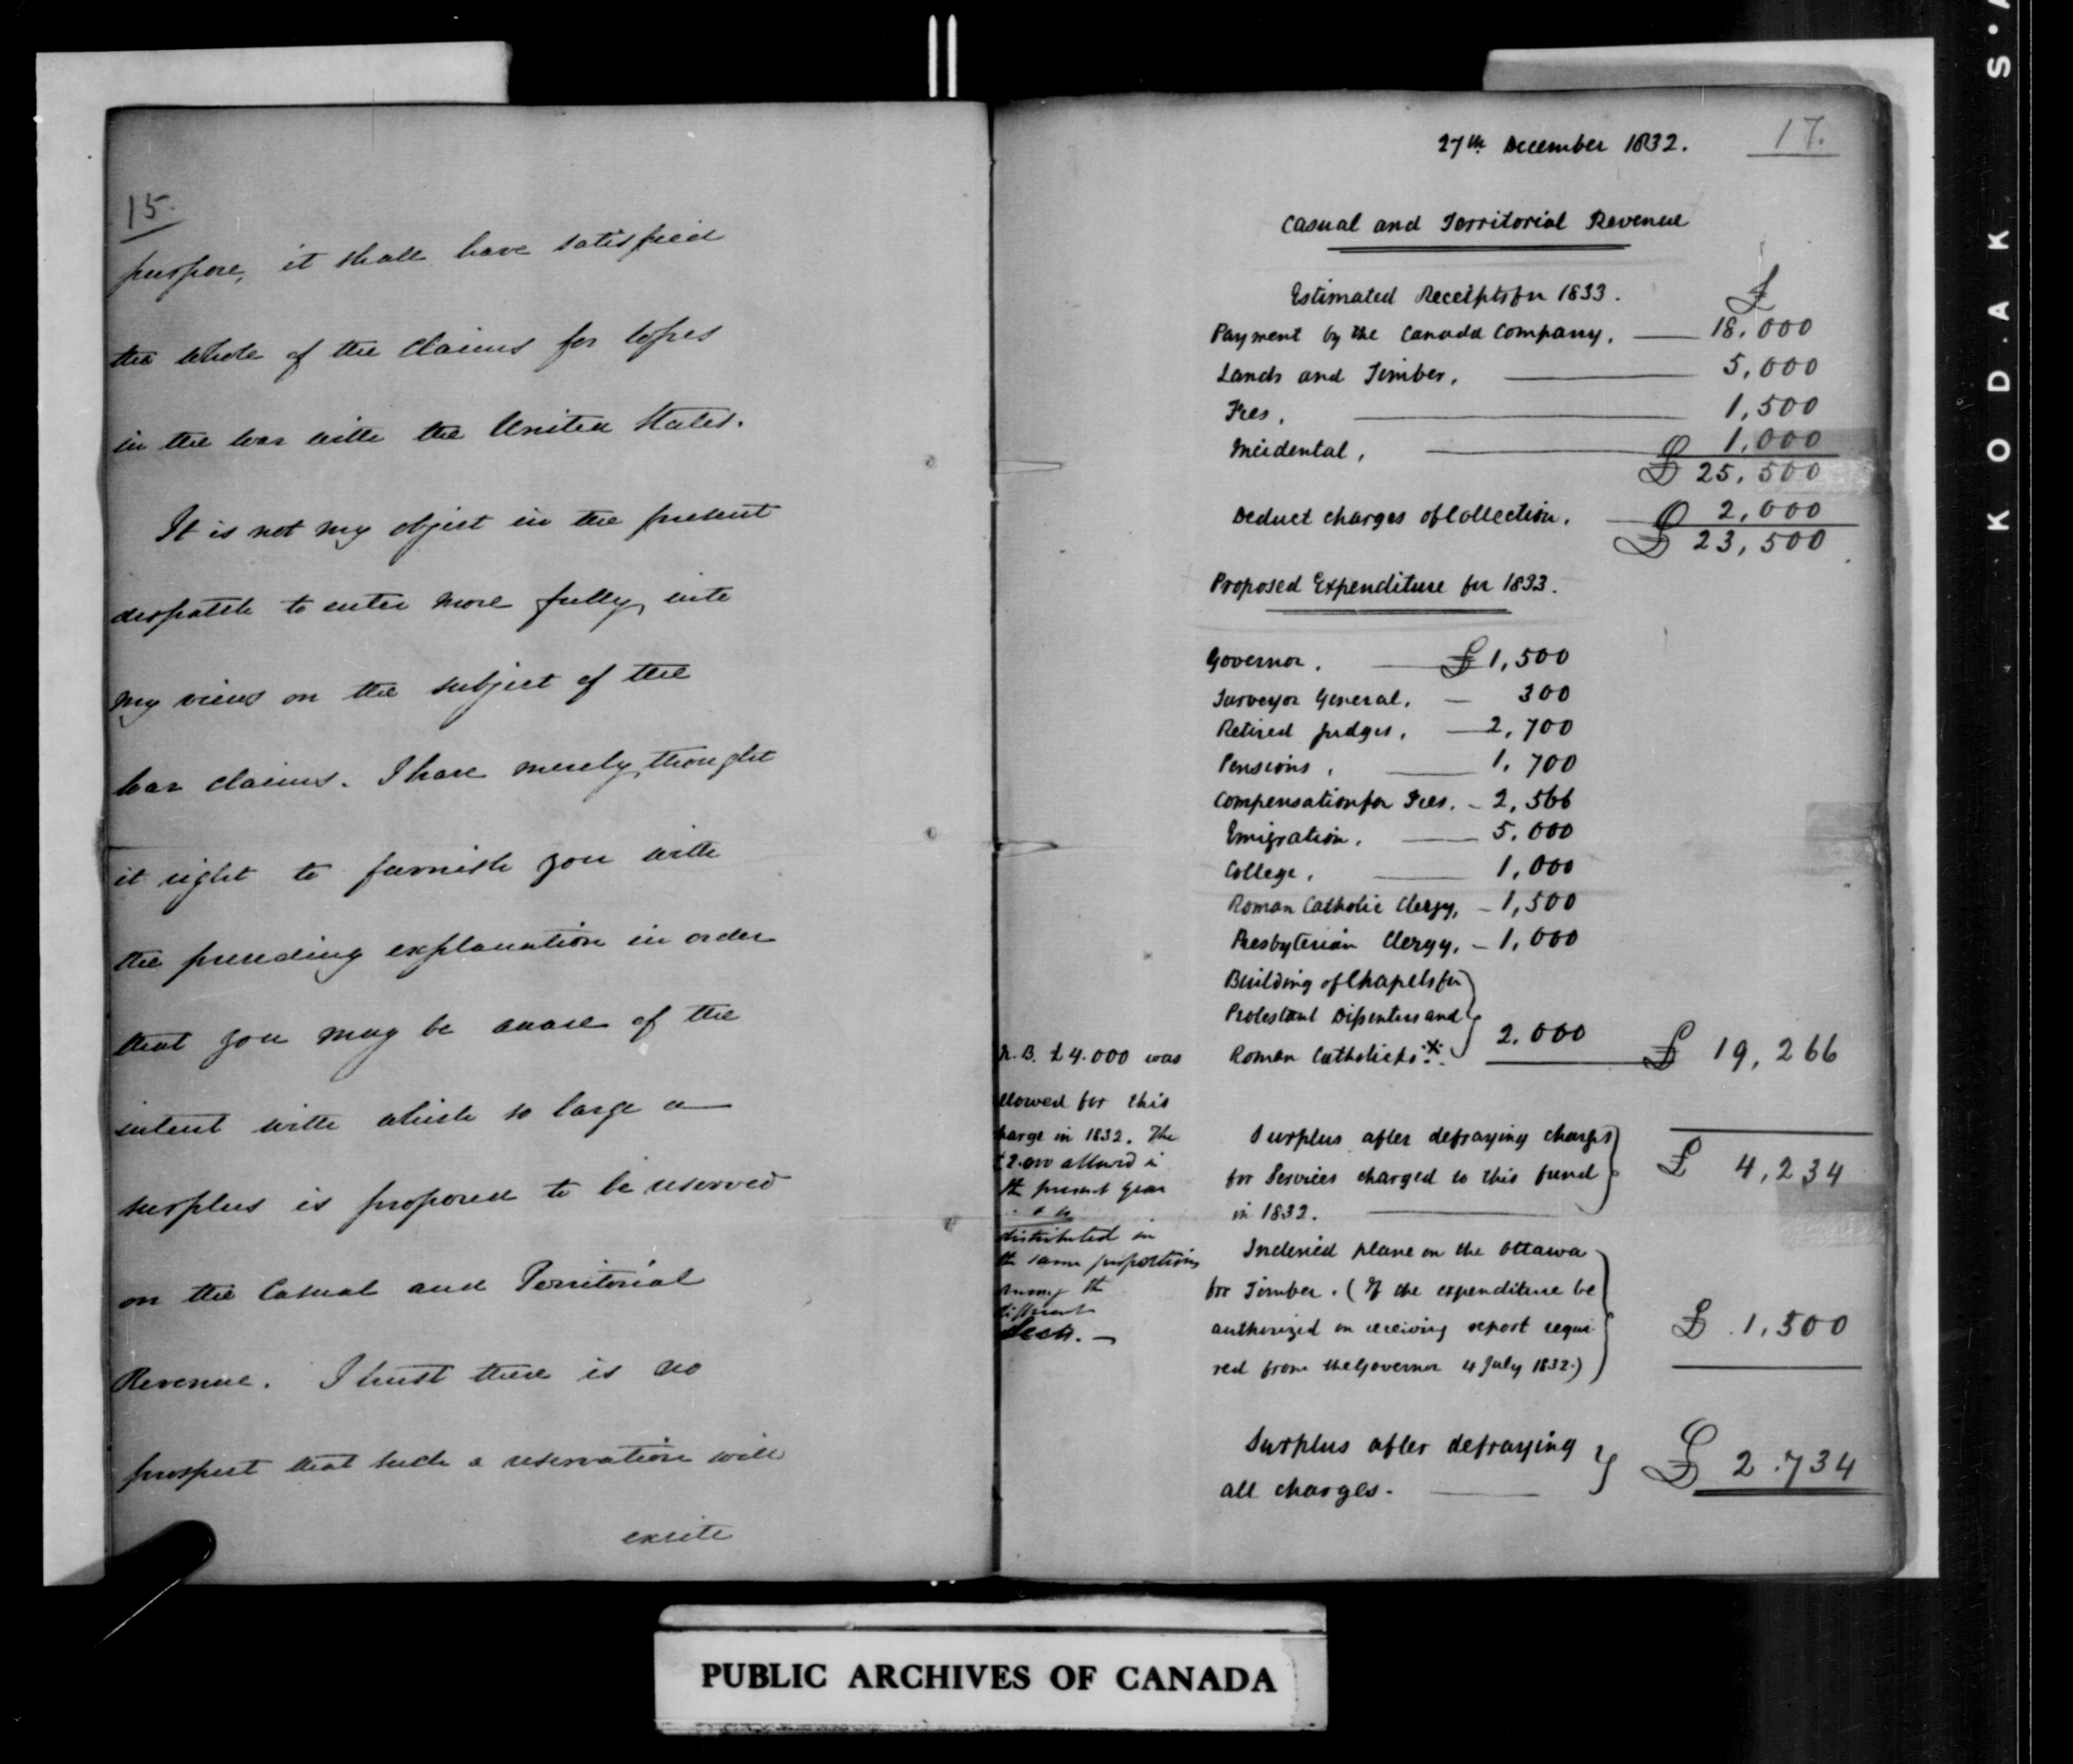 15.
purpose, it shall have satisfied
the whole of the claims for losses
in the war with the United States.
It is not my object in the present
despatch to enter more fully into
my views on the subject of the
war claims. I have merely thought
it right to furnish you with
the preceding explanation in order
that you may be aware of the
intent with which so large a
surplus is proposed to be reserved
on the Casual and Territorial
Revenue. I trust there is no
prospect that such a reservation will
excite
27th December 1832.
17.
Casual and Territorial Revenue
Estimated Receipts for 1833.
£
Payment by the Canada Company. 18,000
Lands and Timber. 5,000
Fees. 1,500
Incidental. 1,000
£ 25,500
Deduct charges of Collection. 2,000
£ 23,500
Proposed Expenditure for 1833.
Governor. £ 1,500
Surveyor General. 300
Retired Judges. 2,700
Pensions. 1,700
Compensation for Fees. 2,566
Emigration. 5,000
College. 1,000
Roman Catholic Clergy. 1,500
Presbyterian Clergy. 1,000
Building of Chapels for
Protestant Dissenters and
Roman Catholicks. x 2,000 £ 19,266
N.B. £4.000 was
allowed for this
charge in 1832. The
£2.000 allowed in
the present year
distributed in
the same proportions
among the
different
Sects.
Surplus after defraying charges
for Services charged to this fund £ 4,234
in 1832.
Inclined plane on the Ottawa
for Timber. (If the expenditure be
authorized on receiving report requi £ 1,500
red from the Governor 4 July 1832.)
Surplus after defraying
all charges. £ 2.734
PUBLIC ARCHIVES OF CANADA
KODAK S·A